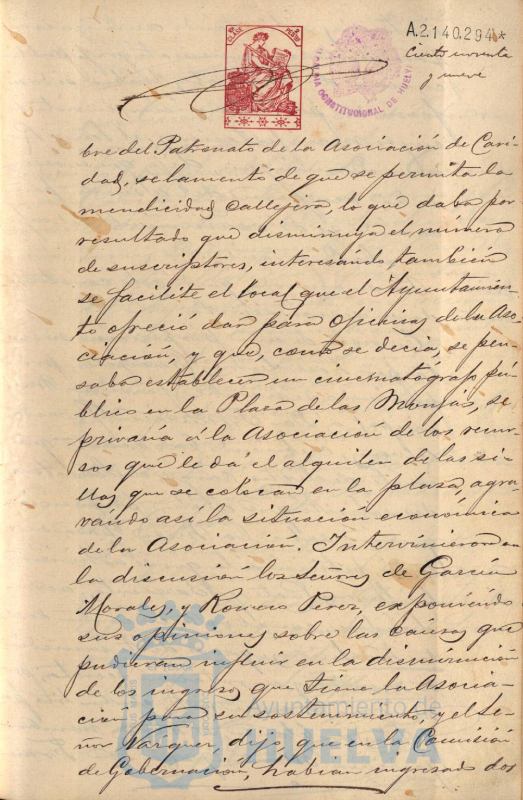 A.2.140.294*
Ciento noventa
y nueve
CLASE
ALCALDIA CONSTITUCIONAL DE HUELVA
bre del Patronato de la Asociación de Cari-
dad, se lamentó de que se permita la
mendicidad callejera, lo que daba por
resultado que disminuya el número
de suscriptores, interesando también
se facilite el local que el Ayuntamien-
to ofreció dar para oficinas de la Aso-
ciación, y que, como se decia, se pen-
saba establecer un cinematógrafo pú-
blico en la Plaza de las Monjas, se
privaría á la Asociación de los recur-
sos que le dá el alquiler de las si-
llas que se colocan en la plaza, agra-
vando así la situación económica
de la Asociación. Intervinieron en
la discusión los Señores de García
Morales, y Romero Perez, exponiendo
sus opiniones sobre las causas que
pudieran influir en la disminución
de los ingresos que tiene la Asocia-
ción para su sostenimiento, y el Se-
ñor Vazquez, dijo que en la Comisión
de Gobernación, habian ingresado dos
Ayuntamiento de
HUELVA